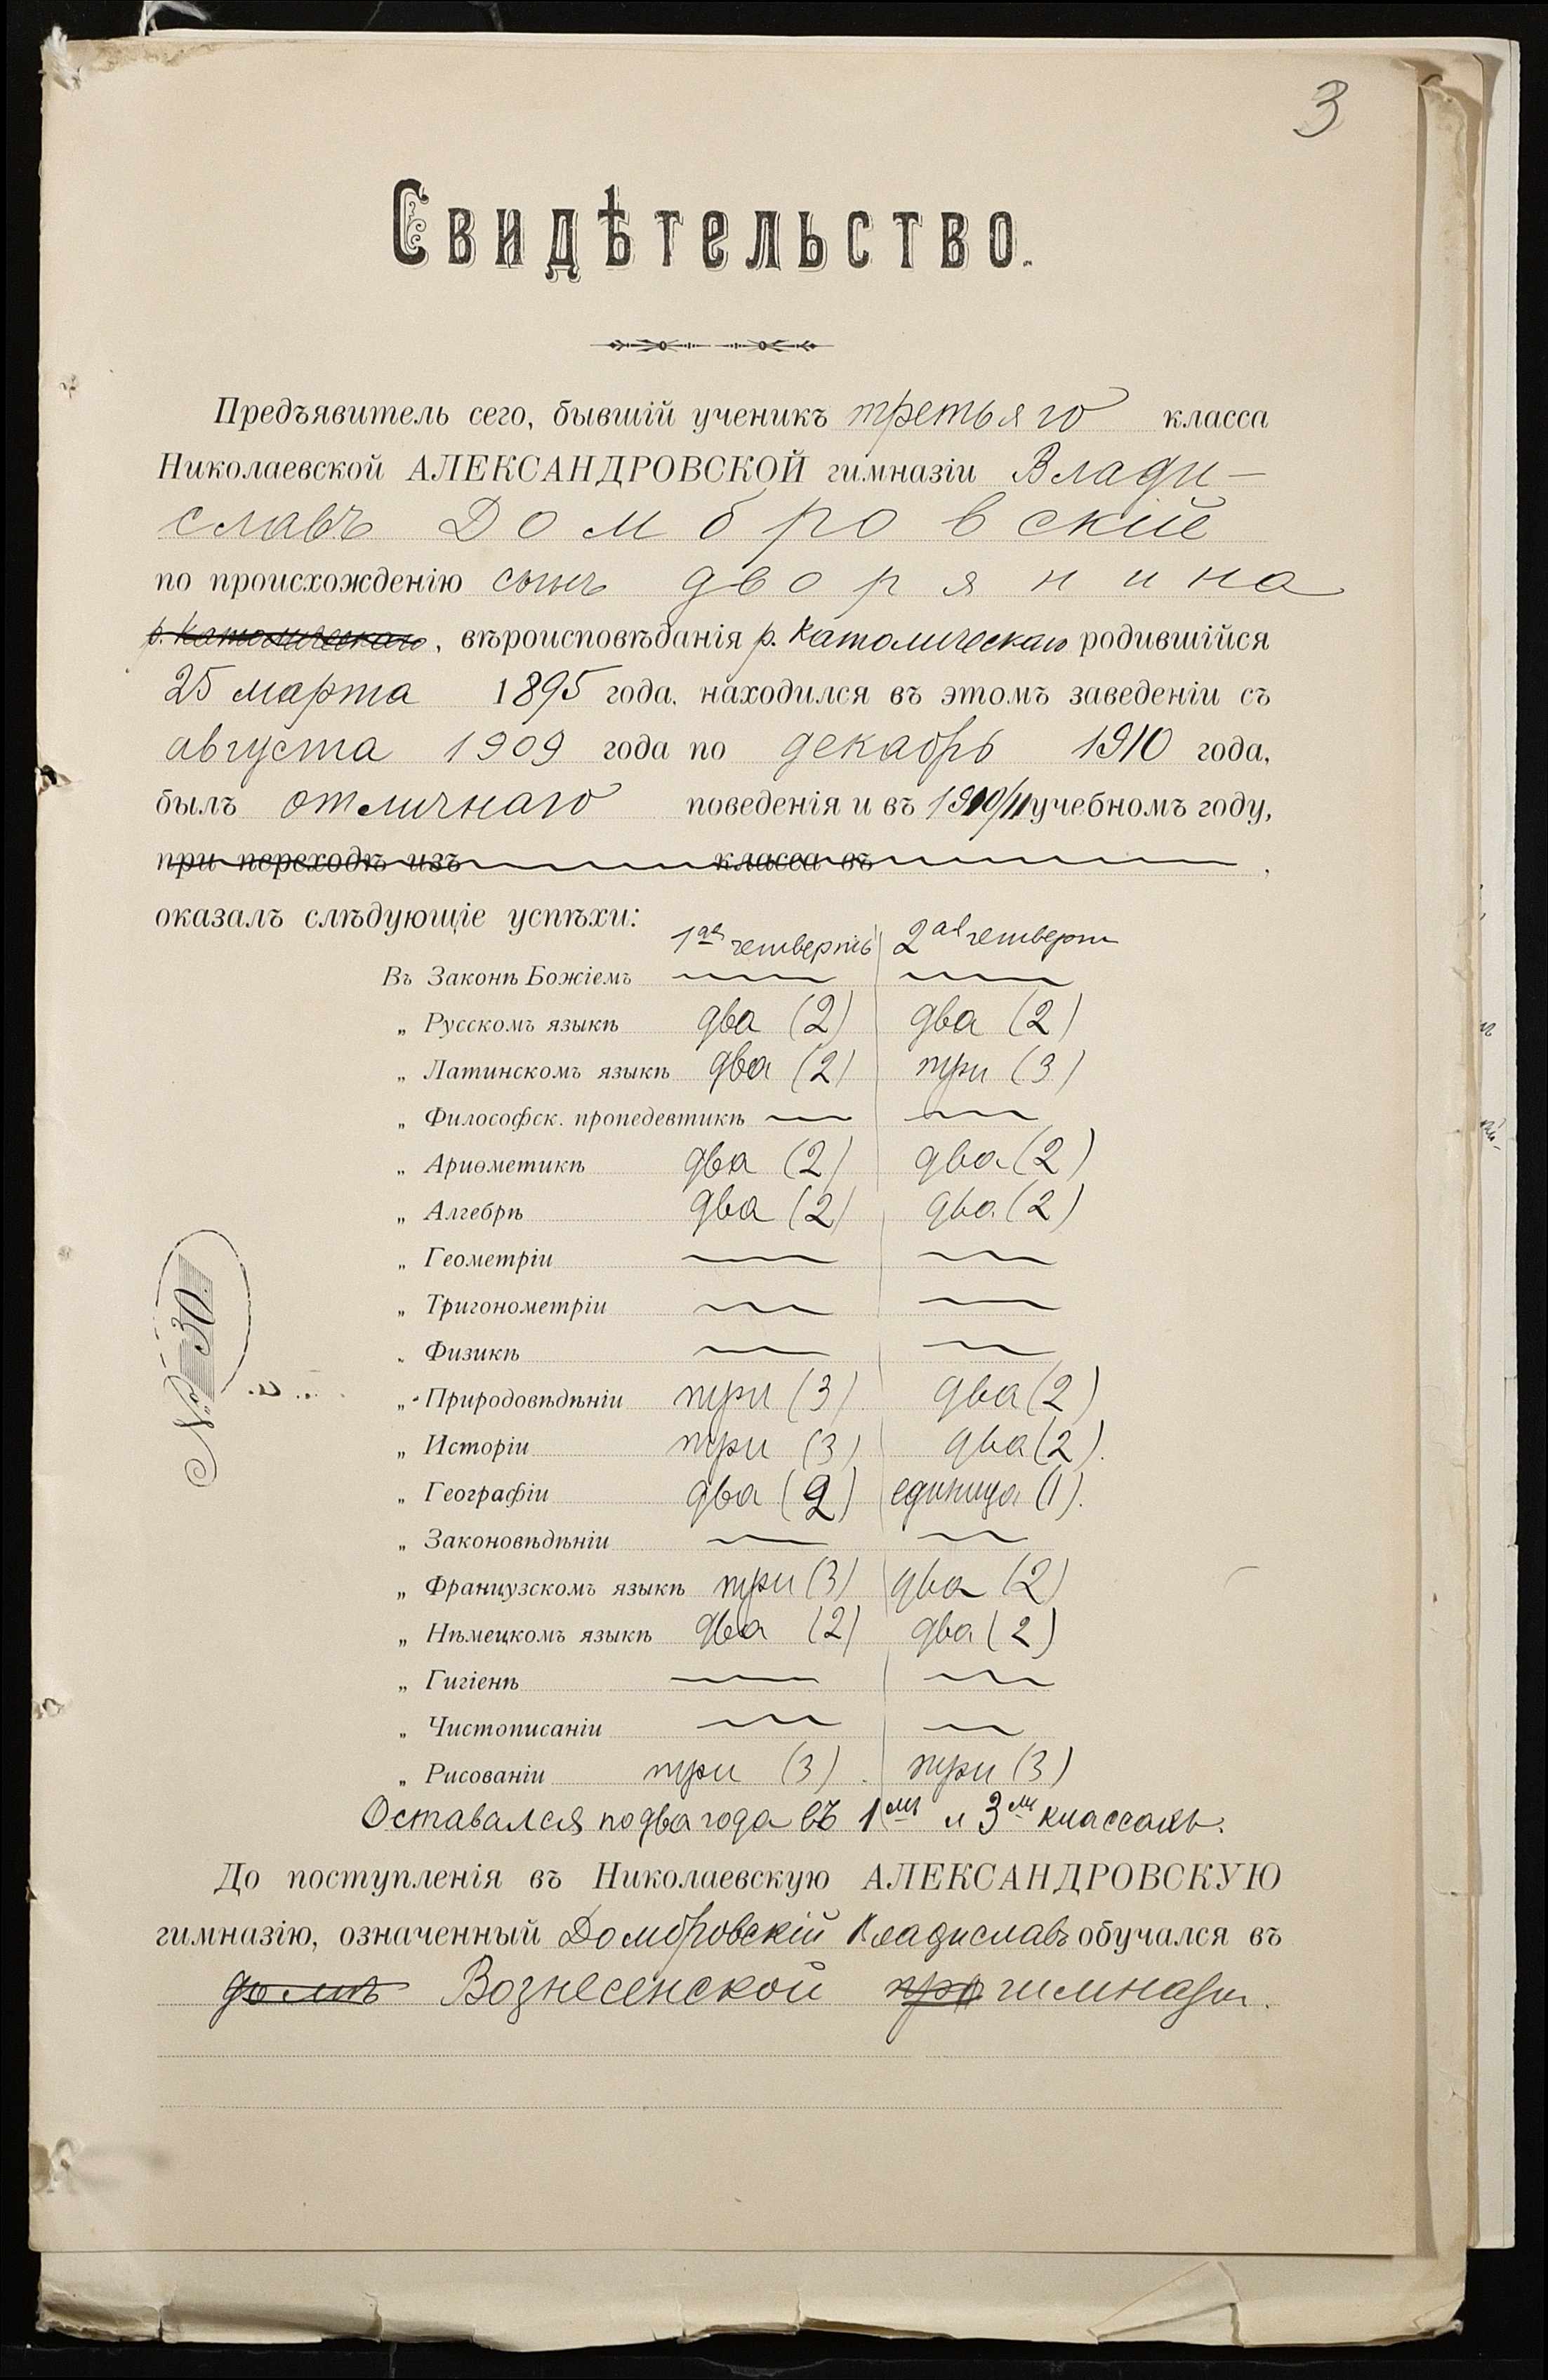 3
Свидѣтельство.
Предъявитель сего, бывшій ученикъ третьяго класса
Николаевской АЛЕКСАНДРОВСКОЙ гимназіи Влади-
славъ Домбровскій
по происхожденію сынъ дворянина
р. католическаго, вѣроисповѣданія р. католическаго родившійся
25 марта 1895 года, находился въ этомъ заведеніи съ
августа 1909 года по декабрь 1910 года,
былъ отличнаго поведенія и въ 1910/11 учебномъ году,
при переходѣ изъ класса въ ,
оказалъ слѣдующіе успѣхи:
1ая четверть 2ая четверть
Въ Законѣ Божіемъ
„ Русскомъ языкѣ два (2) два (2)
„ Латинскомъ языкѣ два (2) три (3)
„ Философск. пропедевтикѣ
„ Ариѳметикѣ два (2) два (2)
„ Алгебрѣ два (2) два (2)
„ Геометріи
„ Тригонометріи
„ Физикѣ
„ Природовѣдѣніи три (3) два (2)
„ Исторіи три (3) два (2).
„ Географіи два (2) единица (1).
„ Законовѣдѣніи
„ Французскомъ языкѣ три (3) два (2)
„ Нѣмецкомъ языкѣ два (2) два (2)
„ Гигіенѣ
„ Чистописаніи
„ Рисованіи три (3) три (3)
Оставался по два года въ 1мъ и 3мъ классахъ.
№ 30.
До поступленія въ Николаевскую АЛЕКСАНДРОВСКУЮ
гимназію, означенный Домбровскій Владиславъ обучался въ
домѣ Вознесенской про гимназіи.